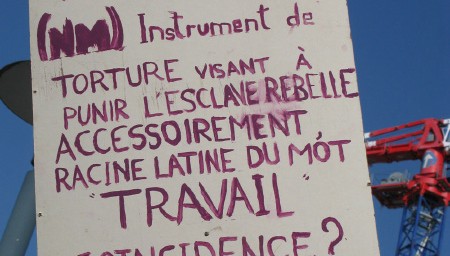 (NM) Instrument de
TORTURE VISANT À
PUNIR L'ESCLAVE REBELLE
ACCESSOIREMENT,
RACINE LATINE DU MÔT
"TRAVAIL
COINCIDENCE?